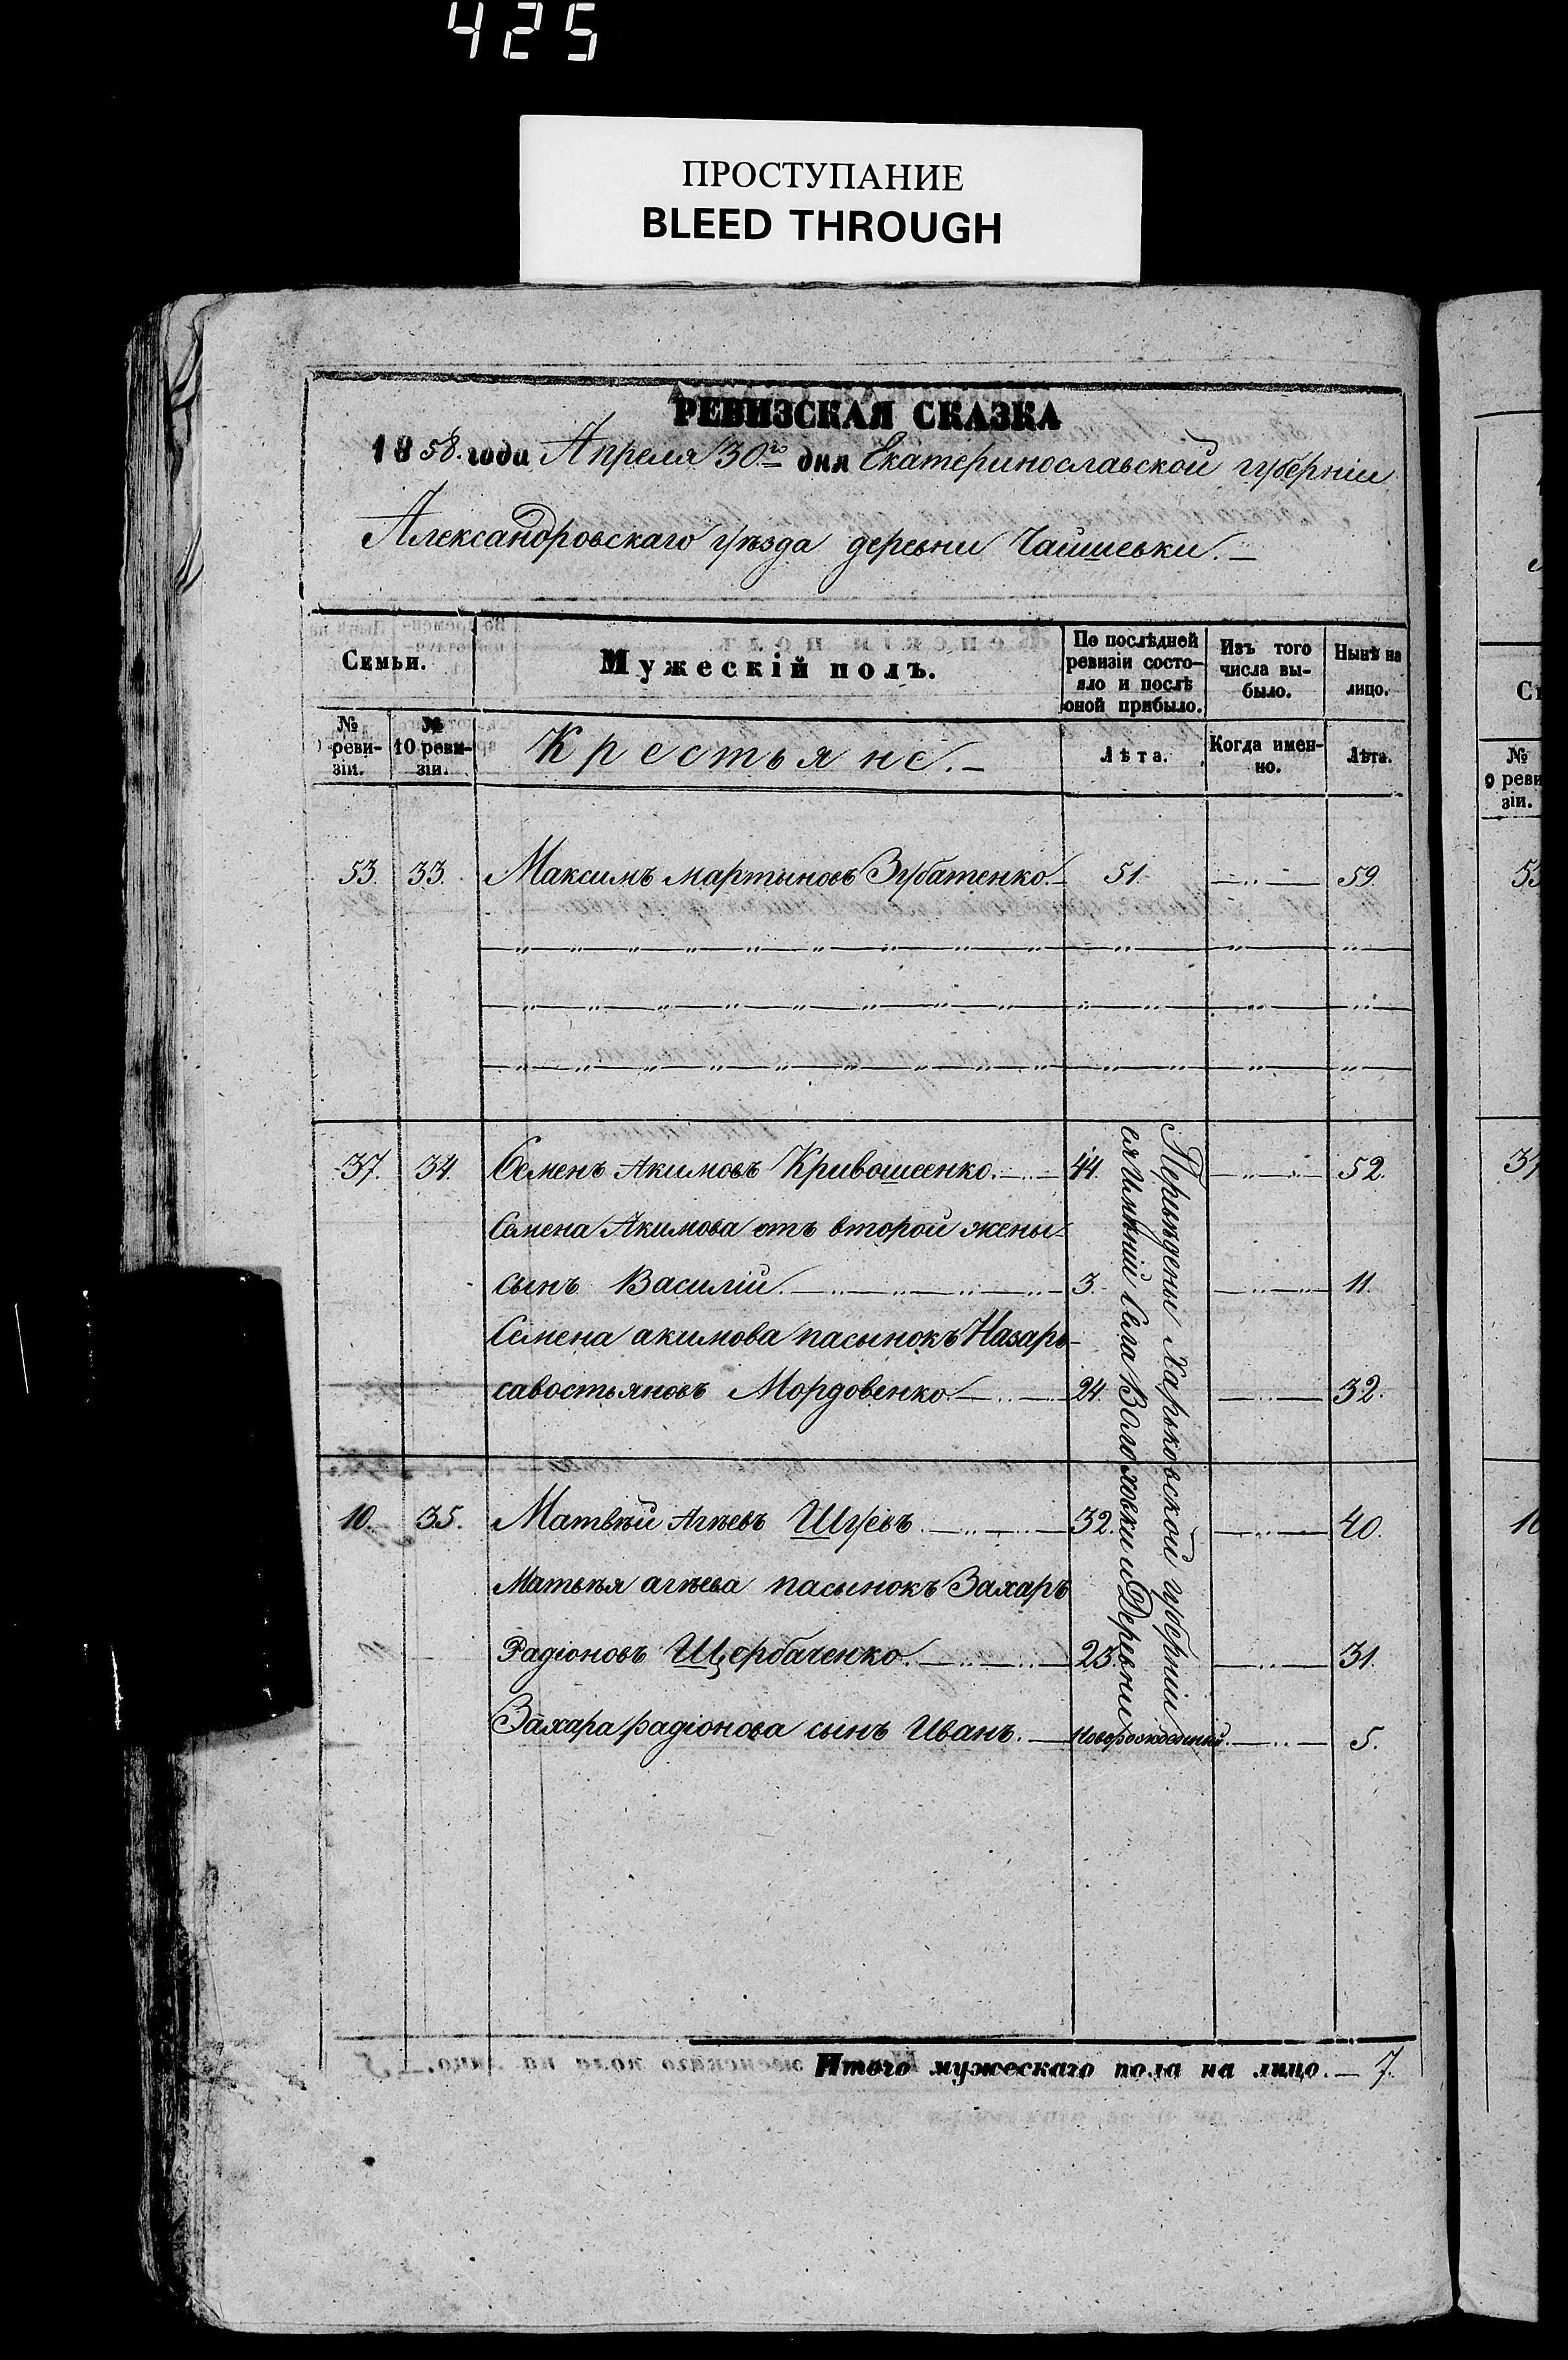 425
ПРОСТУПАНИЕ
BLEED THROUGH
РЕВИЗСКАЯ СКАЗКА
1858. года Апреля 30.го дня Екатеринославской губерніи
Александровскаго уѣзда деревни
Семьи.
Мужескій полъ.
По послѣдней ревизіи состояло и послѣ оной прибыло.
Изъ того числа выбыло.
Нынѣ на лицо.
№ ревизіи.
№ 10 ревизіи.
Крестьяне.
Лѣта.
Когда именно.
Лѣта.
53. 33. Максимъ мартыновъ Зубатенко. 51. 59.
37. 34. Семенъ Акимовъ Кривошеенко. 44. 52.
Семена Акимова отъ второй жены
сынъ Василій. 3. 11.
Семена акимова пасынокъ Назаръ
савостьяновъ Мордовенко. 24. 32.
10. 35. Матвѣй Агѣевъ Шуевъ. 32. 40.
Матвѣя агѣева пасынокъ Захаръ
Радіоновъ Щербаченко. 23. 31.
Захара радіонова сынъ Иванъ. Новорожденный. 5.
Перевѣдены Харьковской губерніи
имѣній Села и Деревни
Итого мужескаго пола на лицо. 7.
№
9 реви
зіи.